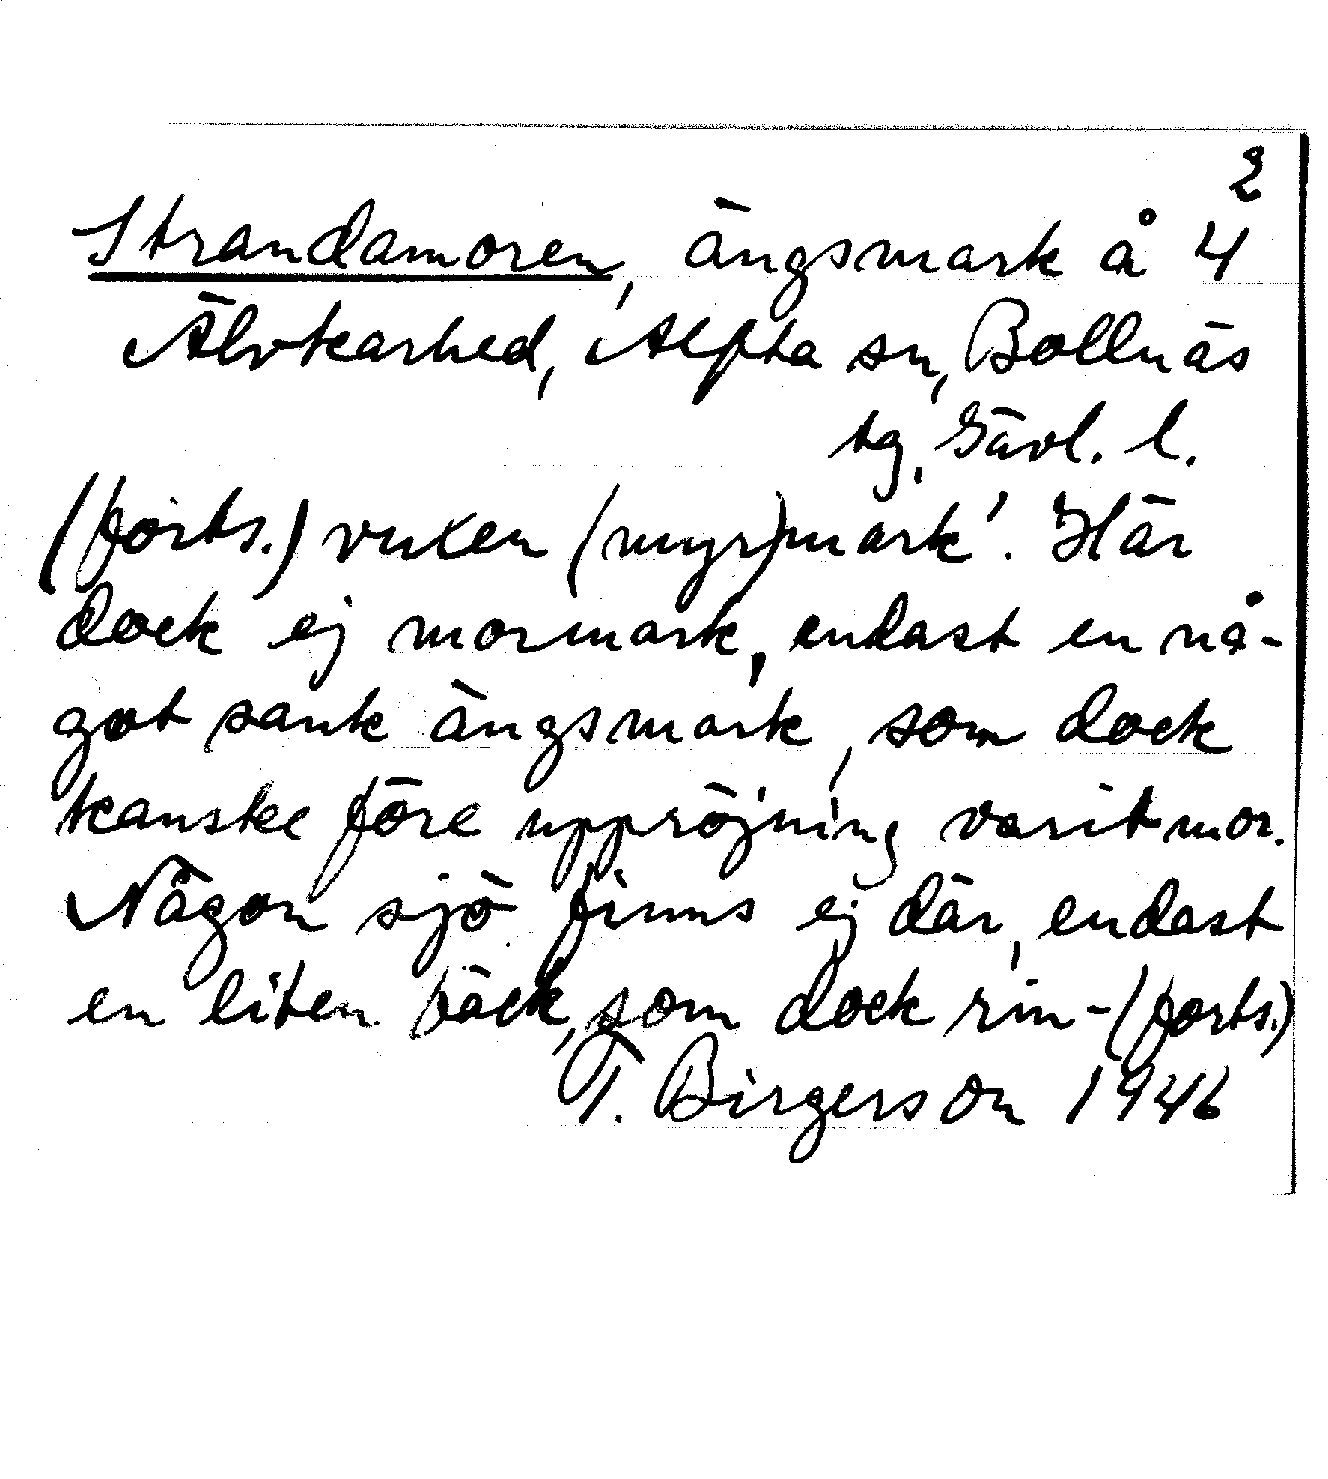 2
Strandamoren, ängsmark å 4
Älvkarhed, Alfta sn, Bollnäs
tg, Gävl. l.
(forts.) vuxen (myr)mark'. Här
dock ej mormark, endast en nå-
got sank ängsmark, som dock
kanske före uppröjning varit mor.
Någon sjö finns ej där, endast
en liten bäck, som dock rin-(forts.)
T. Birgerson 1946